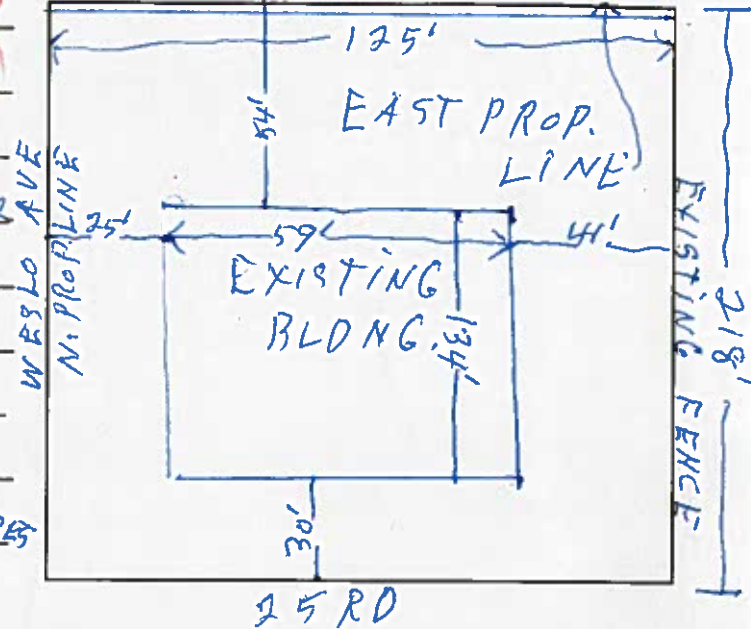 125'
54'
EAST PROP.
LINE
WESLO AVE
N. PROP. LINE
25'
59'
41'
EXISTING
BLDNG.
134'
EXISTING FENCE
218'
30'
25 RD